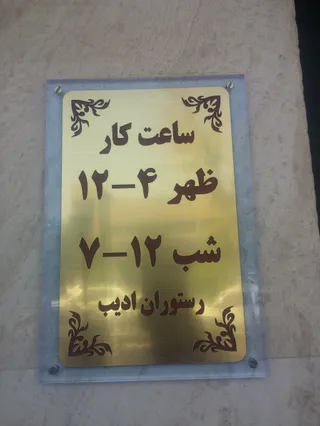 ساعت کار
ظهر ۴-۱۲
شب ۱۲-۷
رستوران ادیب